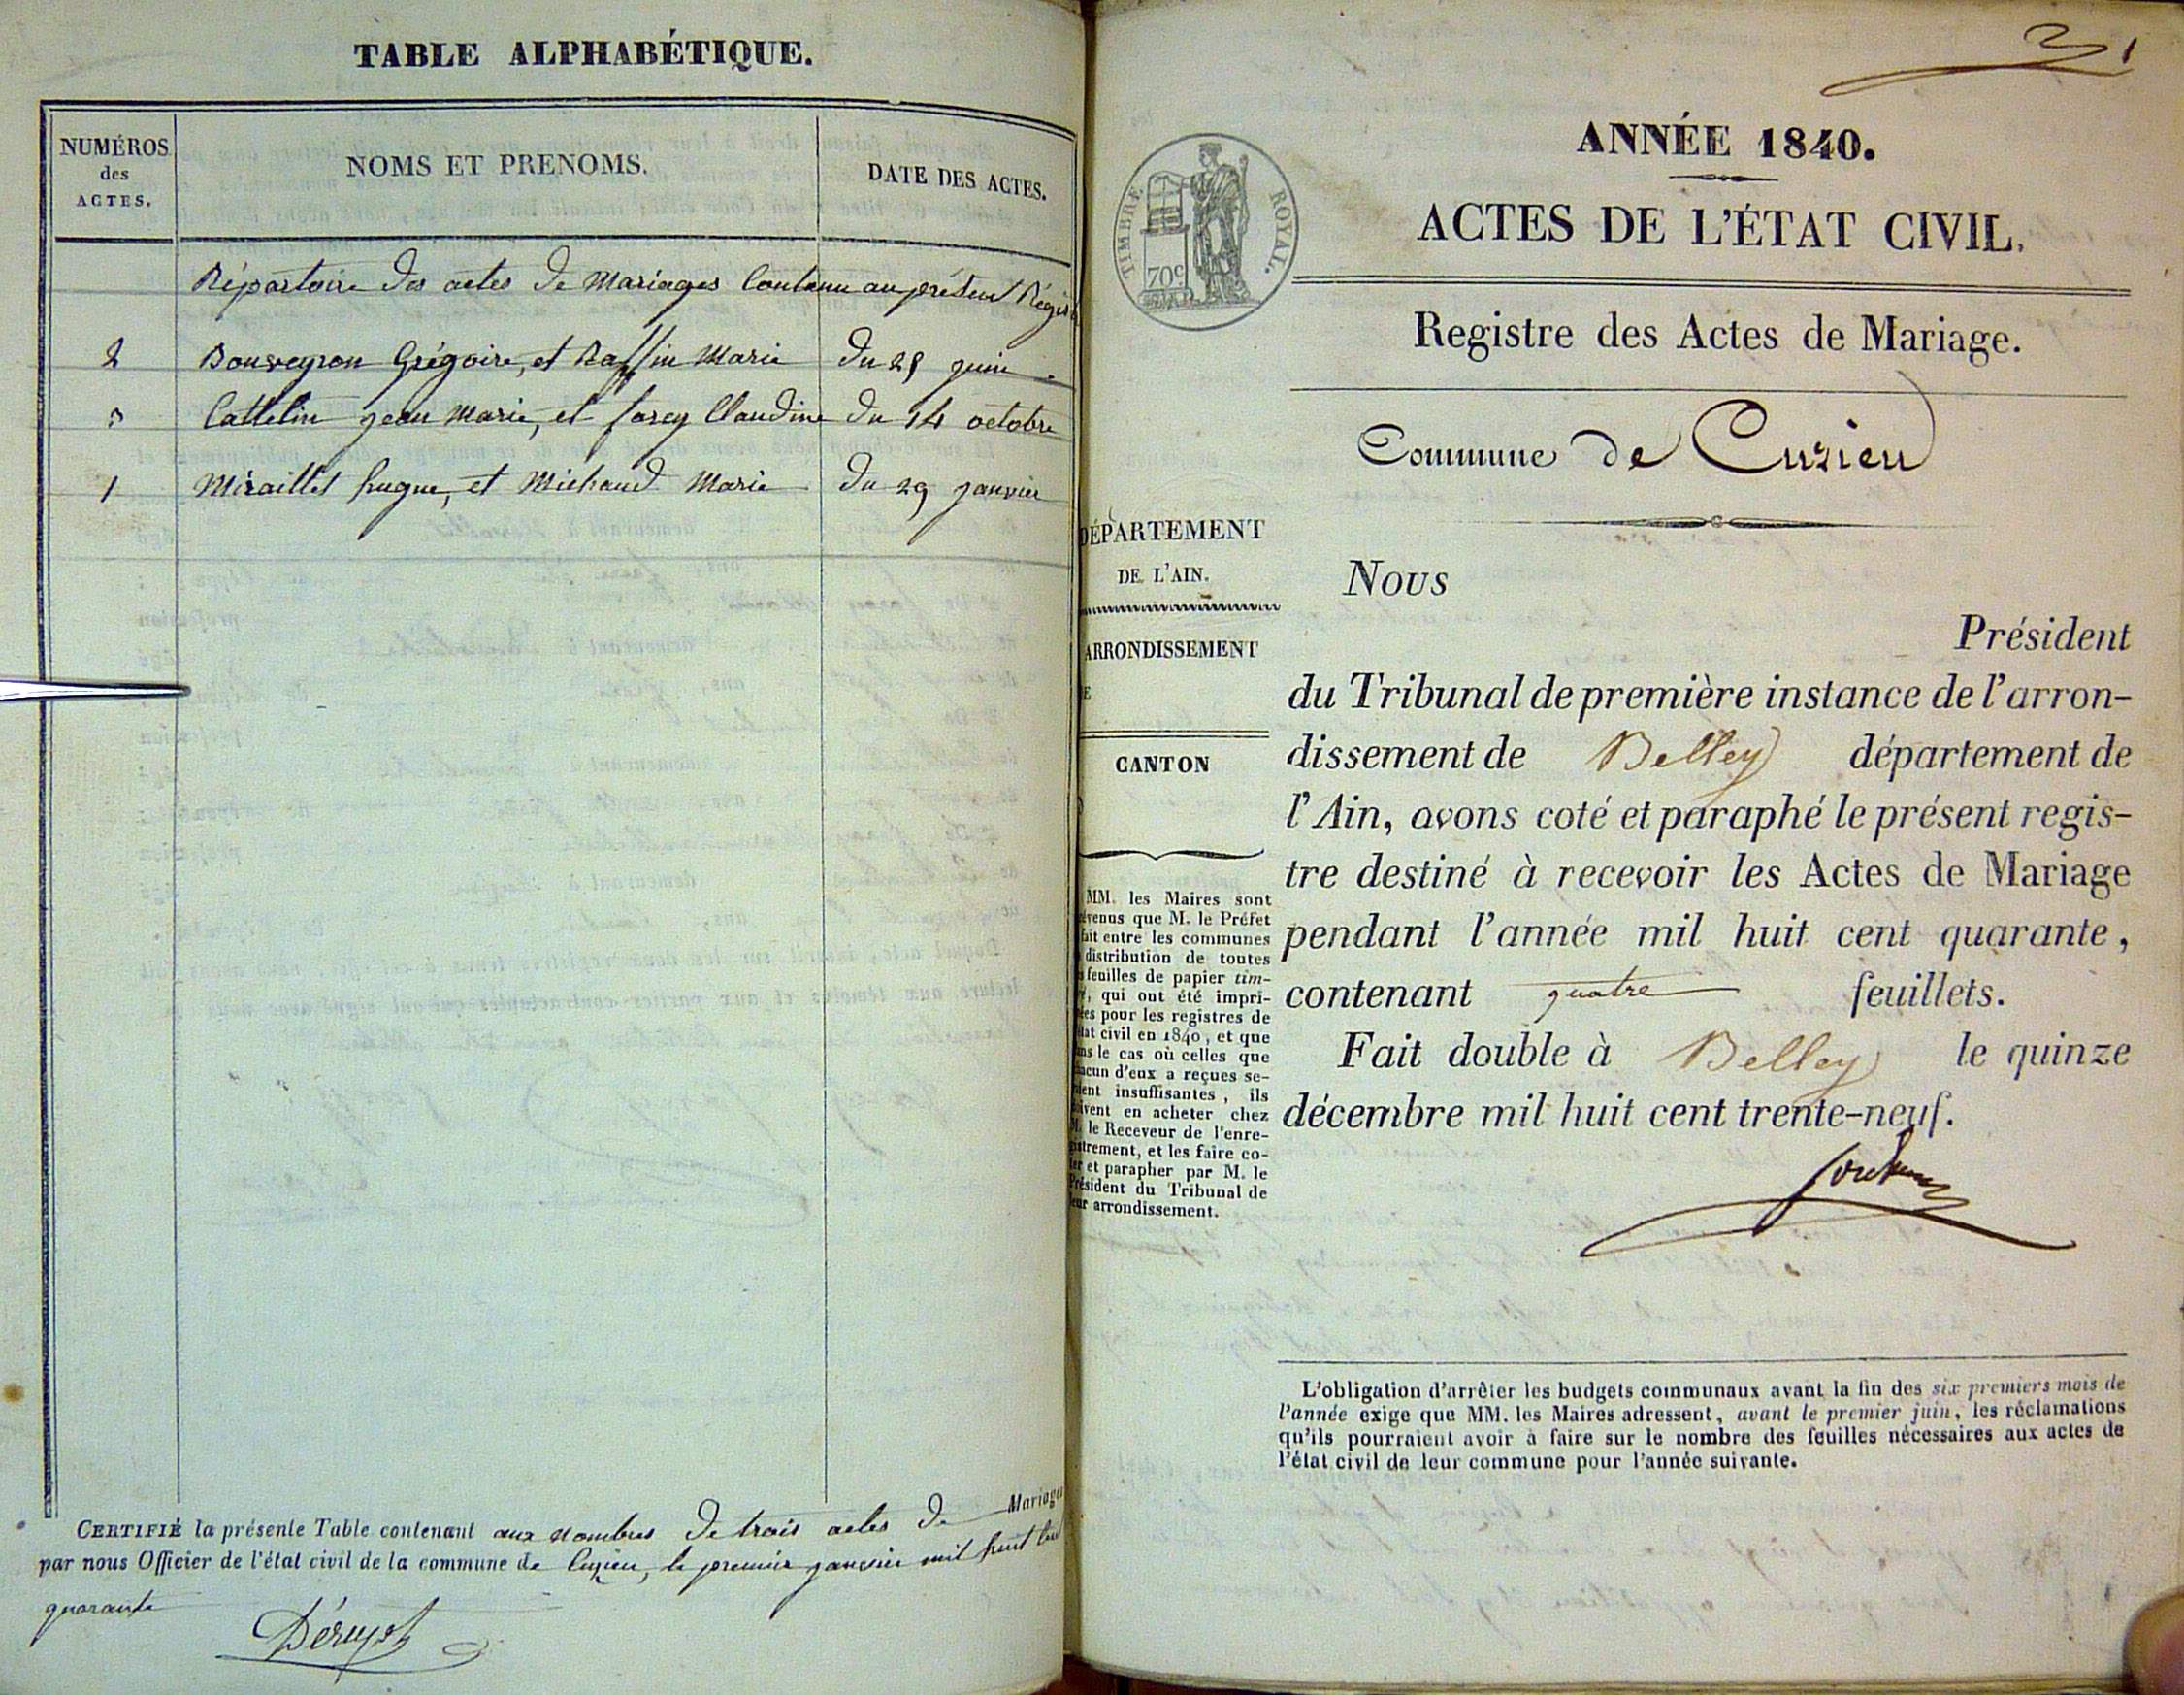 TABLE ALPHABÉTIQUE.
NUMÉROS
des
ACTES.
NOMS ET PRENOMS.
DATE DES ACTES.
Répartoire des actes de Mariages Contenu au présent Régis
2 Bouveyron Grégoire, et Raffin Marie du 28 juin
3 Cattelin jean Marie, et farcy Claudine du 14 octobre
1 Miraillet hugue, et Michaud Marie du 29 janvier
CERTIFIÉ la présente Table contenant aux nombres de trois actes de Mariages
par nous Officier de l'état civil de la commune de Cuzieu, le premier janvier mil huit cent
quarante
1
ANNÉE 1840.
TIMBRE ROYAL.
70c
ACTES DE L'ÉTAT CIVIL.
Registre des Actes de Mariage.
Commune de Cuzieu
DÉPARTEMENT
DE L'AIN.
ARRONDISSEMENT
E
CANTON
MM. les Maires sont
évenus que M. le Préfet
fait entre les communes
distribution de toutes
s feuilles de papier tim-
, qui ont été impri-
ées pour les registres de
état civil en 1840, et que
ans le cas où celles que
hacun d'eux a reçues se-
aient insuffisantes, ils
oivent en acheter chez
M. le Receveur de l'enre-
gistrement, et les faire co-
ter et parapher par M. le
Président du Tribunal de
leur arrondissement.
Nous
Président
du Tribunal de première instance de l'arron-
dissement de Belley département de
l'Ain, avons coté et paraphé le présent regis-
tre destiné à recevoir les Actes de Mariage
pendant l'année mil huit cent quarante,
contenant quatre feuillets.
Fait double à Belley le quinze
décembre mil huit cent trente-neuf.
L'obligation d'arrêter les budgets communaux avant la fin des six premiers mois de
l'année exige que MM. les Maires adressent, avant le premier juin, les réclamations
qu'ils pourraient avoir à faire sur le nombre des feuilles nécessaires aux actes de
l'état civil de leur commune pour l'année suivante.